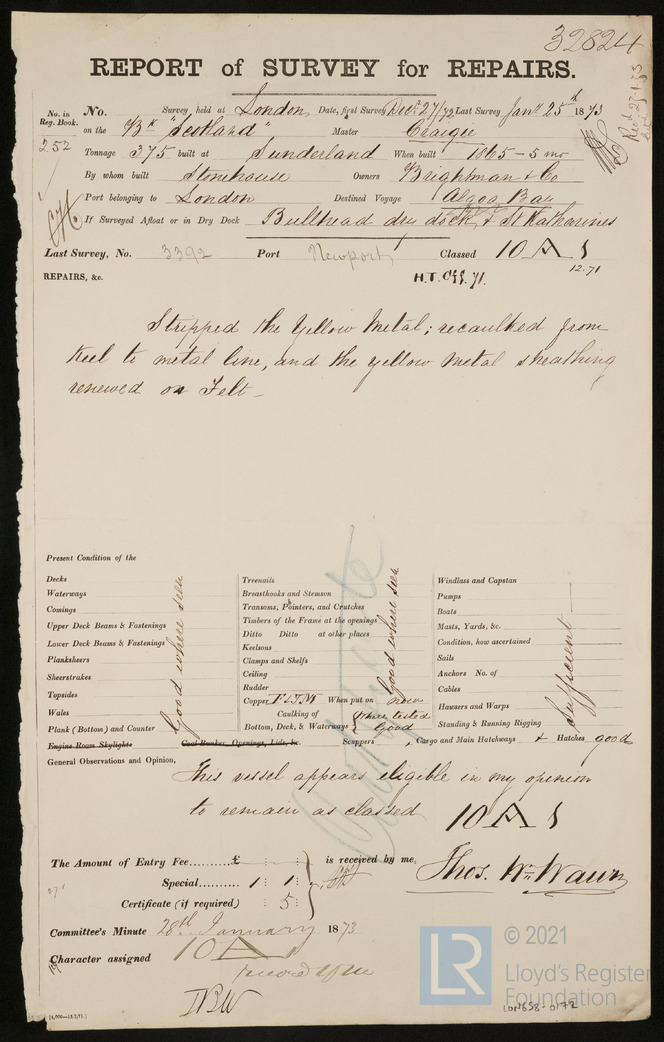 32824
REPORT of SURVEY for REPAIRS.
No. in Reg. Book. No. Survey held at London Date, first Survey Decr 27/72 Last Survey Jany 25th 1873
Recd 27.1.73
252 on the Bk "Scotland" Master Craigie
Tonnage 375 built at Sunderland When built 1865 - 5 mo
By whom built Stonehouse Owners Brightman & Co
Port belonging to London Destined Voyage Algoa Bay
If Surveyed Afloat or in Dry Dock Bullhead dry dock & St Katharines
Last Survey, No. 3392 Port Newport Classed 10 A 1
12.71
REPAIRS, &c. H.T.
Stripped the Yellow Metal; recaulked from
keel to metal line, and the yellow metal sheathing
renewed on Felt -
Present Condition of the
Decks
Waterways
Comings
Upper Deck Beams & Fastenings
Lower Deck Beams & Fastenings
Planksheers
Sheerstrakes
Topsides
Wales
Plank (Bottom) and Counter
Good where seen
Engine Room Skylights Coal Bunker, Openings, Lids, &c.
Treenails
Breasthooks and Stemson
Transoms, Pointers, and Crutches
Timbers of the Frame at the openings
Ditto Ditto at other places
Keelsons
Clamps and Shelfs
Ceiling
Rudder
Good where seen
Copper F & YM When put on now
Caulking of Bottom, Deck, & Waterways where tested Good
Windlass and Capstan
Pumps
Boats
Masts, Yards, &c.
Condition, how ascertained
Sails
Anchors No. of
Cables
Hawsers and Warps
Standing & Running Rigging
Sufficient
Scuppers , Cargo and Main Hatchways & Hatches good
General Observations and Opinion,
This vessel appears eligible in my opinion
to remain as classed 10 A 1
Certificate
The Amount of Entry Fee......... £ : : is received by me,
Special.......... 1 : 1 :
Certificate (if required) : 5 :
Thos. Wm Wawn
Committee's Minute 28th January 1873
Character assigned 10 A
© 2021
LR
Lloyd's Register
Foundation
LON658-0172